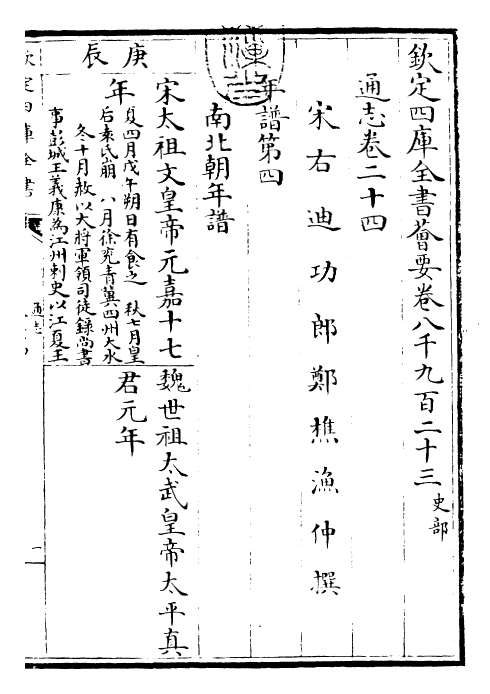 欽定四庫全書薈要卷八千九百二十三 史部
通志卷二十四
宋右迪功郎鄭樵漁仲撰
年譜第四
南北朝年譜
庚辰
宋太祖文皇帝元嘉十七
年
夏四月戊午朔日有食之 秋七月皇
后袁氏崩 八月徐兖青冀四州大水
冬十月赦以大將軍領司徒錄尚書
事彭城王義康為江州刺史以江夏王
魏世祖太武皇帝太平真
君元年
欽定四庫全書
通志
一